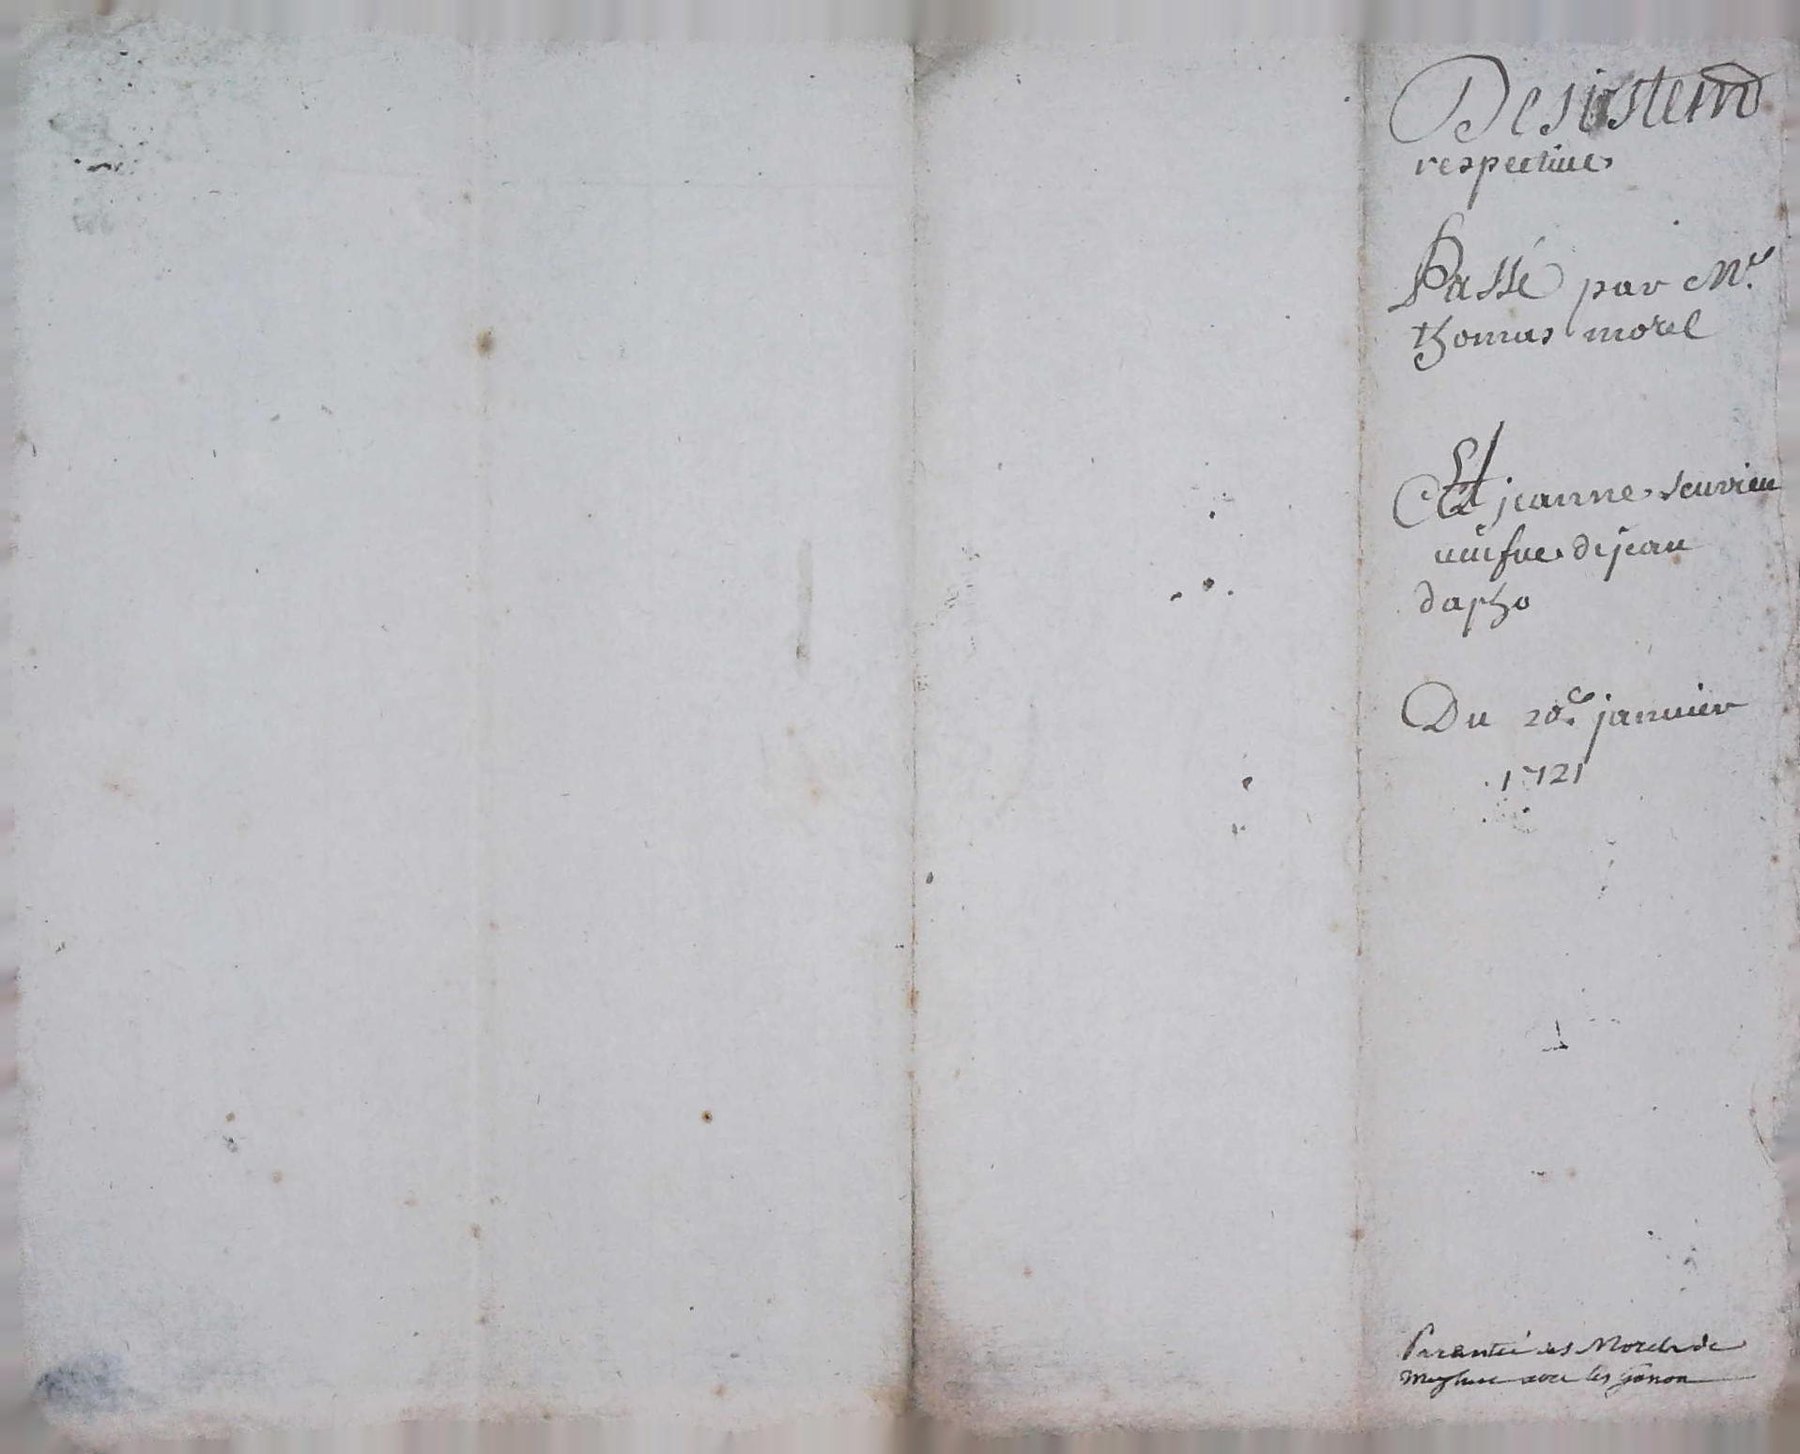 Desistem
respective
Passé par Mr.
thomas morel
Et jeanne
veufue de jean
dapho
Du 20e. janvier
1721
Parantée des Morels de
avec les